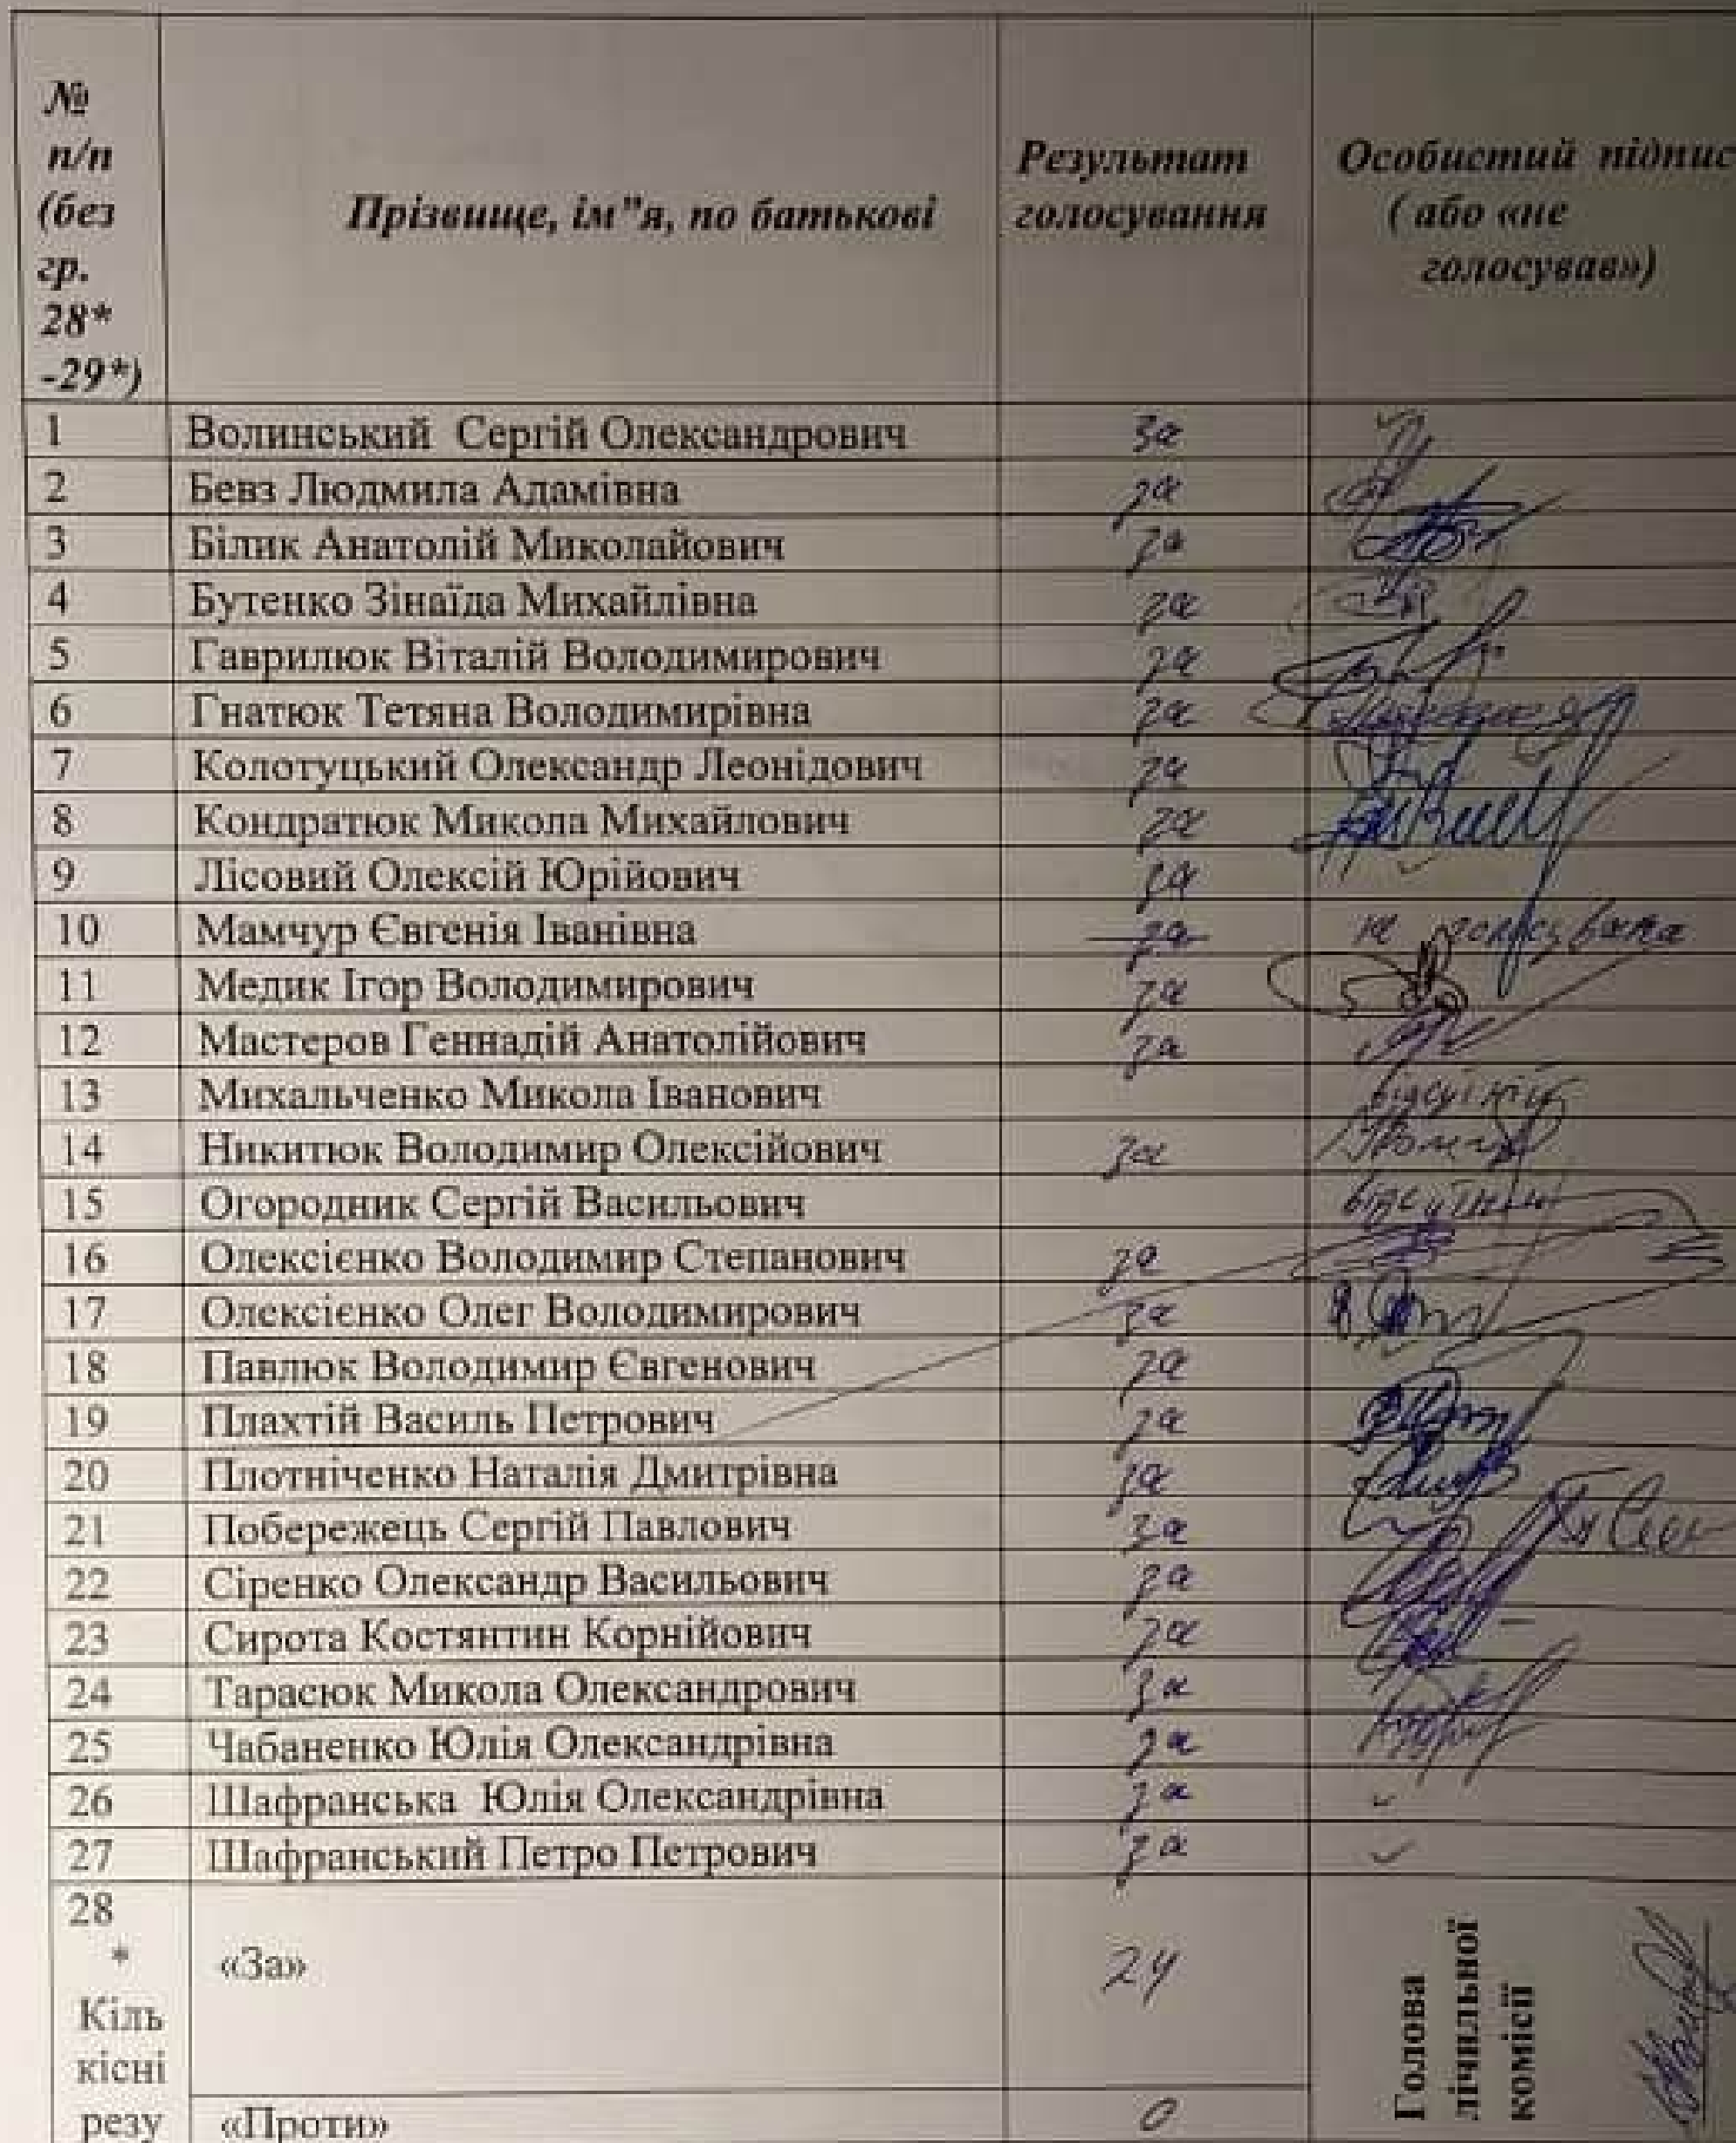 №
п/п
(без
гр.
28*
-29*)
Прізвище, ім"я, по батькові
Результат
голосування
Особистий підпис
( або «не
голосував»)
1 Волинський Сергій Олександрович за
2 Бевз Людмила Адамівна за
3 Білик Анатолій Миколайович за
4 Бутенко Зінаїда Михайлівна за
5 Гаврилюк Віталій Володимирович за
6 Гнатюк Тетяна Володимирівна за
7 Колотуцький Олександр Леонідович за
8 Кондратюк Микола Михайлович за
9 Лісовий Олексій Юрійович за
10 Мамчур Євгенія Іванівна за не голосувала
11 Медик Ігор Володимирович за
12 Мастеров Геннадій Анатолійович за
13 Михальченко Микола Іванович відсутній
14 Никитюк Володимир Олексійович за
15 Огородник Сергій Васильович відсутній
16 Олексієнко Володимир Степанович за
17 Олексієнко Олег Володимирович за
18 Павлюк Володимир Євгенович за
19 Плахтій Василь Петрович за
20 Плотніченко Наталія Дмитрівна за
21 Побережець Сергій Павлович за
22 Сіренко Олександр Васильович за
23 Сирота Костянтин Корнійович за
24 Тарасюк Микола Олександрович за
25 Чабаненко Юлія Олександрівна за
26 Шафранська Юлія Олександрівна за
27 Шафранський Петро Петрович за
28
*
Кіль
кісні
резу
«За» 24
«Проти» 0
Голова
лічильної
комісії